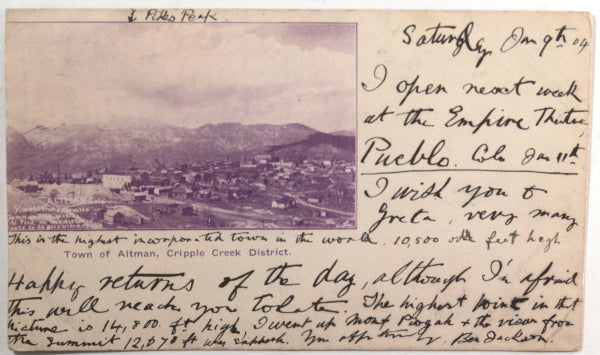 ↓ Pikes Peak
Saturday Jan 9th 04
I open next week
at the Empire Theatre,
Pueblo. Colo Jan 11th.
I wish you &
Greta very many
This is the highest incorporated town in the world. 10,500 odd feet high
Town of Altman, Cripple Creek District.
Happy returns of the day, although I'm afraid
this will reach you to late. The highest point in that
picture is 14,800 ft high, I went up Mont Pisgah & the view from
the summit 12,070 ft was superb. You
Ben Jackson.